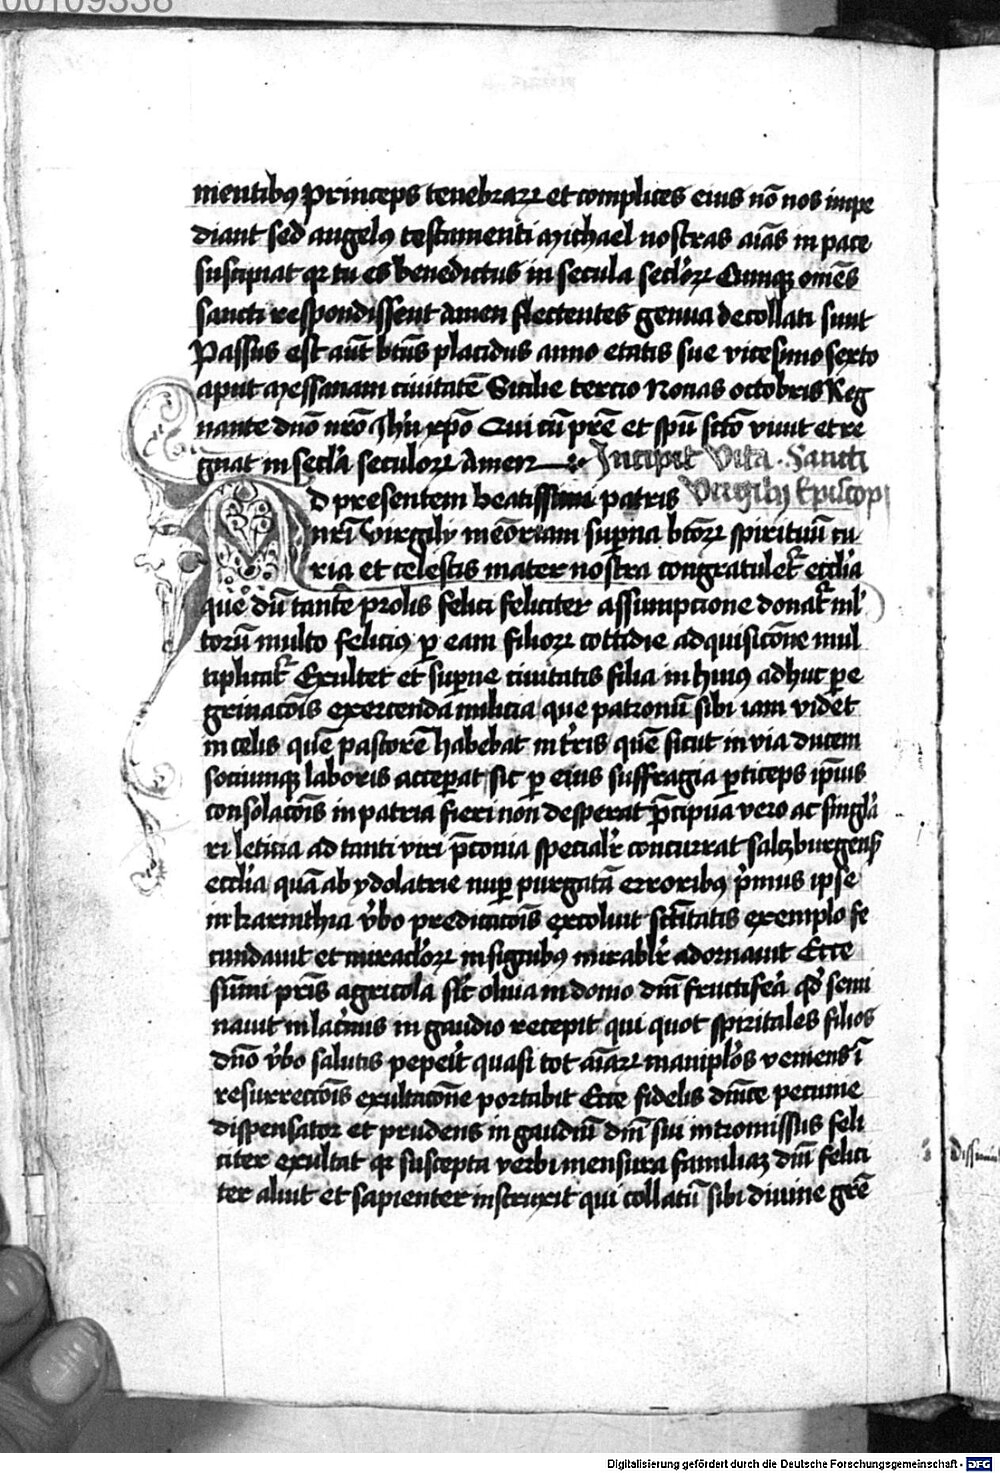 00109338
mentibꝰ princeps tenebraꝝ et complices eius nō nos impe
diant sed angelꝰ testamenti michael nostras aīas in pace
suscipiat qꝛ tu es benedictus in secula secl'oꝝ Cumqꝫ om̄es
sancti respondissent amen flectentes genua decollati sunt
Passus est aūt bt̄us placidus anno etatis sue vicesimo sexto
aput messanam ciuitatē Sicilie tercio Nonas octobris Reg
nante dn̄o nr̄o Jhū xp̄o Qui cū pr̄e et sp̄u sctō viuit et re
gnat in secl'a seculoꝝ Amen Incipit Vita Sancti
Ad presentem beatissimi patris Virgilij Episcopi
nr̄i Virgilij mēoriam sup̄na bt̄oꝝ spirituū cu
ria et celestis mater nostra congratulet᷑ eccl'ia
que dū tante prolis felici feliciter assumpcione donat᷑ ml'
torū multo feliciꝰ ꝑ eam filioꝝ cottidie adquisicōne mul
tiplicat᷑ Exultet et sup̄ne ciuitatis filia in huiꝰ adhuc ꝑe
grinacōis exercenda milicia que patronū sibi iam videt
in celis quē pastorē habebat in t̄ris quē sicut in via ducem
sociumqꝫ laboris acceꝑat sic ꝑ eius suffragia ꝑticeps ip̄ius
consolacōis in patria fieri non desperat p̄cipua vero ac singl'a
ri leticia ad tanti viri p̄conia special'r concurrat salczburgens̄
eccl'ia quā ab ydolatrie nuꝑ purgatā erroribꝰ p̄mus ipse
in karinthia v̄bo predicacōis excoluit sctītatis exemplo fe
cundauit et miracl'oꝝ insignibꝰ mirabl'r adornauit Ecce
sūmi pr̄is agricola sic̄ oliua in domo dn̄i fructifera qd' semi
nauit in lac̄mis in gaudio recepit qui quot spiritales filios
dn̄o v̄bo salutis peperit quasi tot aīaꝝ maniplōs veniens ī
resurrectōis exultacōne portabit Ecce fidelis diuīe pecunie
dispensator et prudens in gaudiū dn̄i sui intromissus feli
citer exultat qꝛ suscepta verbi mensura familiaꝫ dn̄i felici
ter aluit et sapienter instruxit qui collatū sibi diuine gr̄e
Digitalisierung gefördert durch die Deutsche Forschungsgemeinschaft - DFG